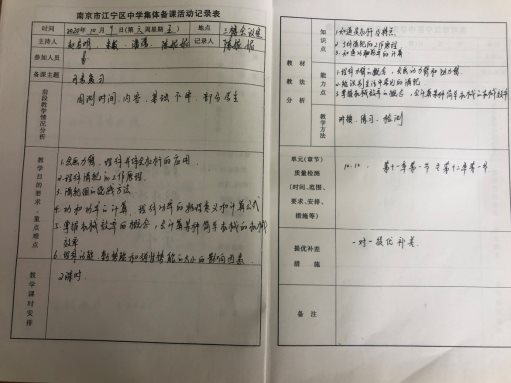 南京市江宁区中学集体备课活动记录表
时间 2020年10月9日(第 周星期五) 地点 三楼会议室
主持人 记录人
参加人员
备课主题 月考复习
前段教学情况分析 周测时间、内容、基础下降、部分学生
教学目的要求、重点难点
1、会画力臂、理解并会杠杆的应用.
2、理解滑轮的工作原理.
3、滑轮组的绕线方法.
4、功和功率的计算,理解功率的物理意义和计算公式
5、掌握机械效率的概念,会计算某种简单机械的机械
效率
6、理解动能、重力势能和弹性势能的大小的影响因素.
教学课时安排 2课时
教材教法分析
知识点
1、知道杠杆
2、了解滑轮的工作原理
3、知道功和功率的计算
能力点
1、理解力臂的概念,会画动力臂和阻力臂.
2、能识别生活中常见的滑轮
3、掌握机械效率的概念,会计算某简单机械的机械效率
教学方法 讲授、练习、检测
单元(章节)质量检测(时间、范围、要求、安排、措施等)
10.12. 第十一章第一节至第十二章第一节
提优补差措施 一对一提优补差.
备注